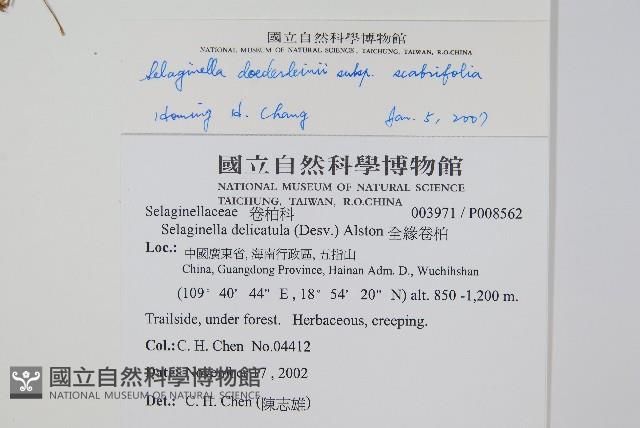 國立自然科學博物館
NATIONAL MUSEUM OF NATURAL SCIENCE, TAICHUNG, TAIWAN, R.O.CHINA
Selaginella doederleinii subsp. scabrifolia
H. Chang Jan. 5, 2007
國立自然科學博物館
NATIONAL MUSEUM OF NATURAL SCIENCE
TAICHUNG, TAIWAN, R.O.CHINA
Selaginellaceae 卷柏科 003971 / P008562
Selaginella delicatula (Desv.) Alston 全緣卷柏
Loc.: 中國廣東省, 海南行政區, 五指山
China, Guangdong Province, Hainan Adm. D., Wuchihshan
(109° 40' 44" E , 18° 54' 20" N) alt. 850 -1,200 m.
Trailside, under forest. Herbaceous, creeping.
Col.: C. H. Chen No.04412
Date: November 7 , 2002
Det.: C. H. Chen (陳志雄)
國立自然科學博物館
NATIONAL MUSEUM OF NATURAL SCIENCE